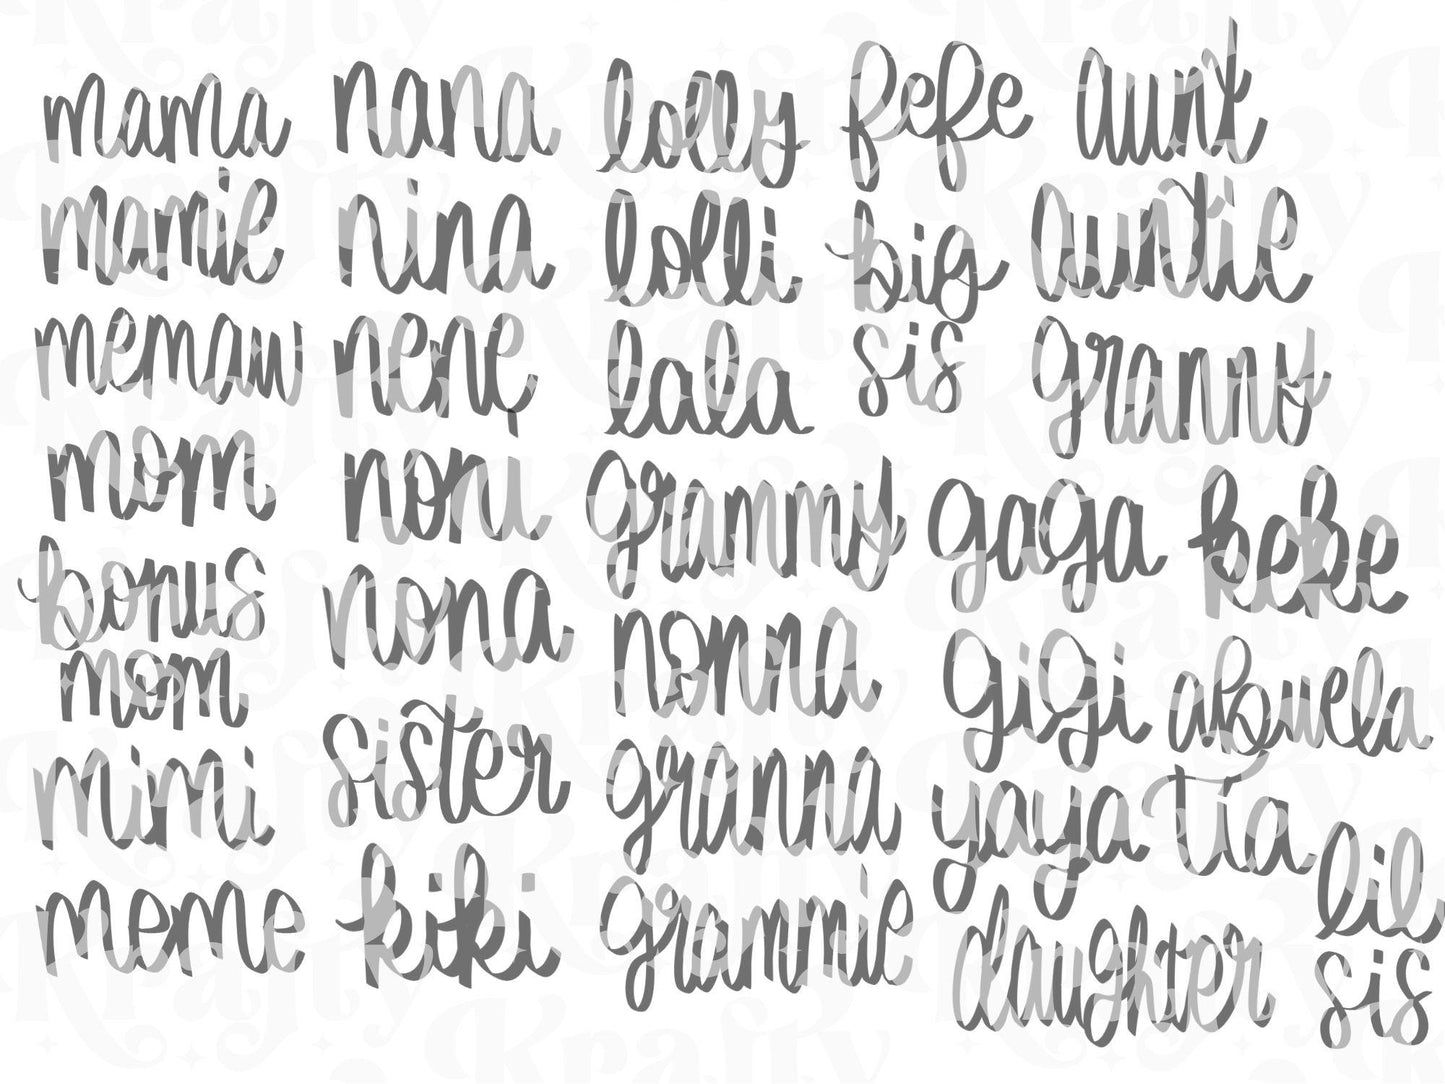 mama
mamie
memaw
mom
bonus
mom
mimi
meme
nana
nina
nene
noni
nona
sister
kiki
lolly
lolli
lala
grammy
nonna
granna
grammie
fefe
big
sis
aunt
auntie
granny
gaga
keke
gigi
abuela
yaya
tía
daughter
lil
sis
Krafty